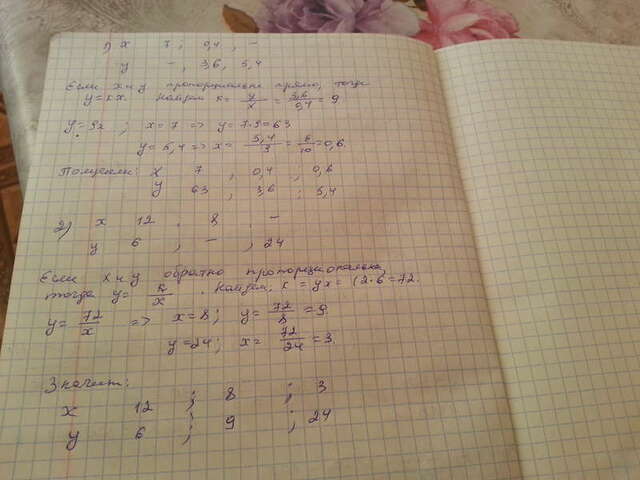 1) x 7 ; 0,4 ; –
y – ; 3,6 ; 5,4
Если x и y пропорциональны прямо, тогда
y = kx. Найдем k = y/x = 3,6/0,4 = 9
y = 9x ; x = 7 => y = 7·9 = 63
y = 5,4 => x = 5,4/9 = 6/10 = 0,6.
Получили: x 7 ; 0,4 ; 0,6
y 63 ; 3,6 ; 5,4
2) x 12 ; 8 ; –
y 6 ; – ; 24
Если x и y обратно пропорциональны,
тогда y = k/x . Найдем, k = yx = 12·6 = 72.
y = 72/x => x = 8; y = 72/8 = 9
y = 24; x = 72/24 = 3.
Значит:
x 12 ; 8 ; 3
y 6 ; 9 ; 24